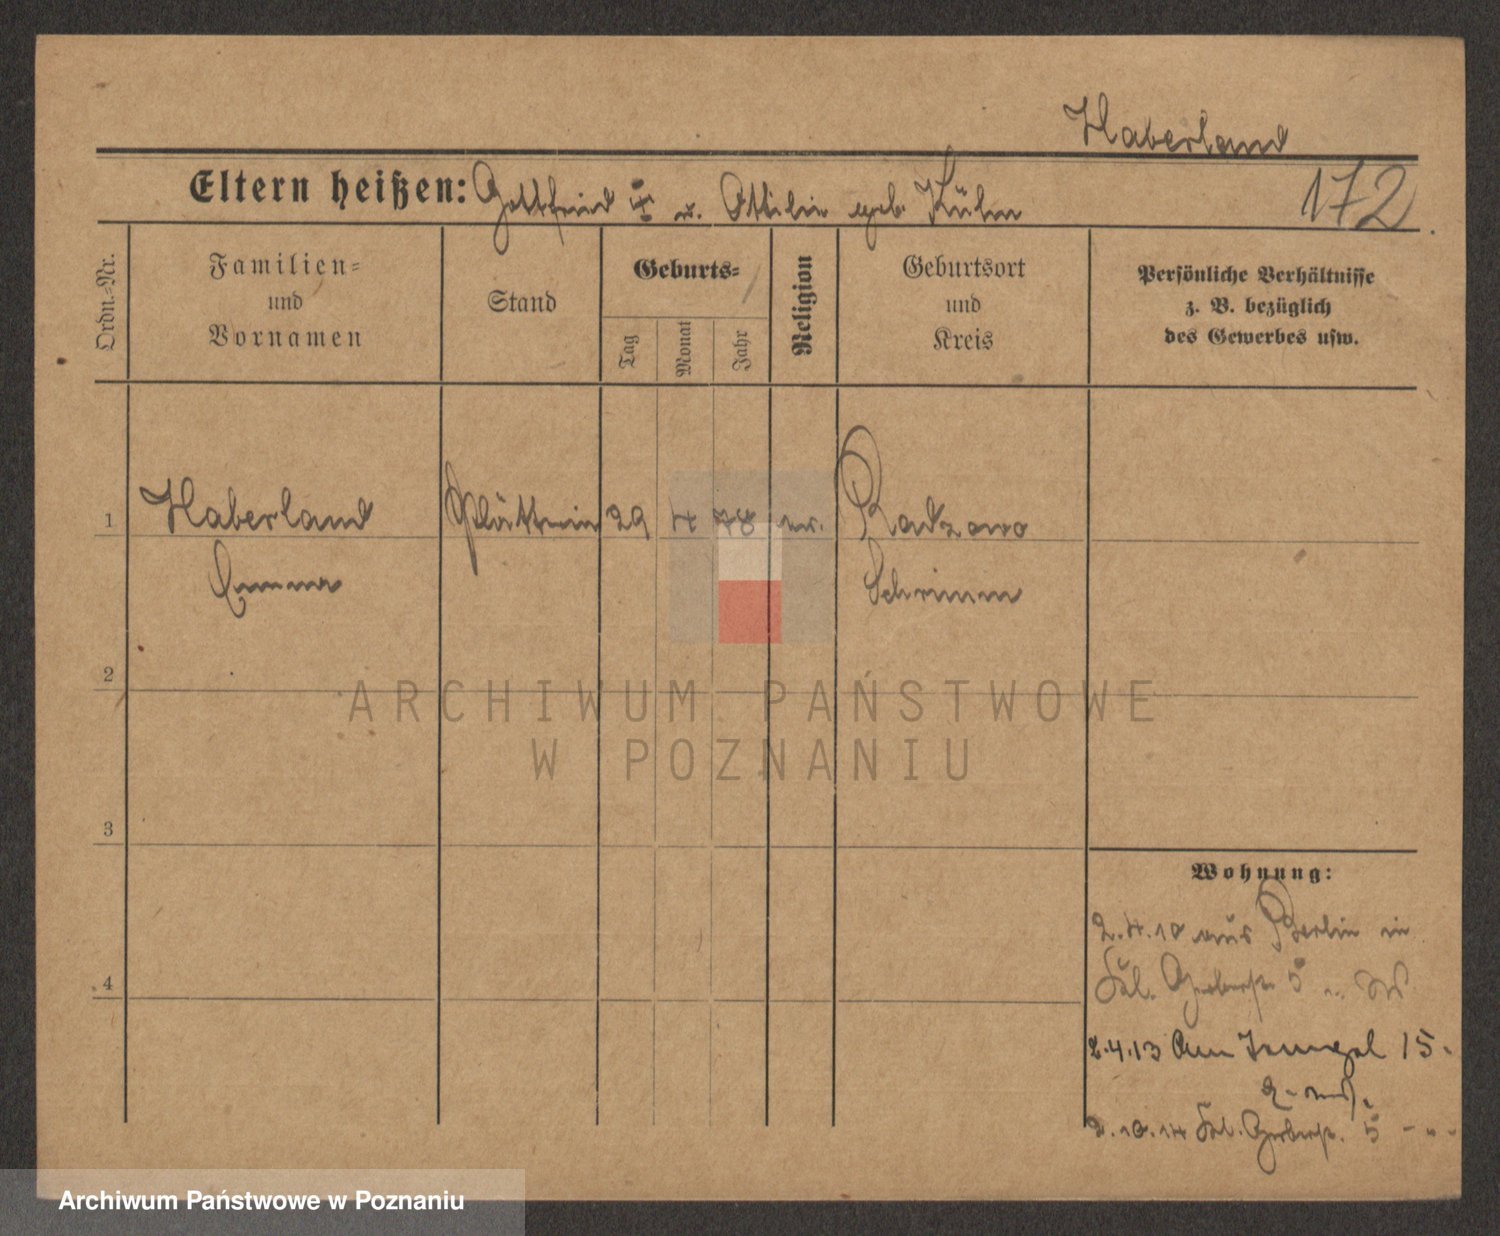 Haberland
Eltern heißen: Gottfried u. Ottilie geb. Kühn
172
Ordn.-Nr.
Familien-
und
Vornamen
Stand
Geburts-
Tag
Monat
Jahr
Religion
Geburtsort
und
Kreis
Persönliche Verhältnisse
z. B. bezüglich
des Gewerbes usw.
1 Haberland Plätterin 29 4 78 ev. Radzewo
Emma Schrimm
2
3
4
Wohnung:
2.4.10 aus Berlin in
Gerberstr. 5
2.4.13 Am 15.
2.10.14 Gerberstr. 5
ARCHIWUM PAŃSTWOWE
W POZNANIU
Archiwum Państwowe w Poznaniu